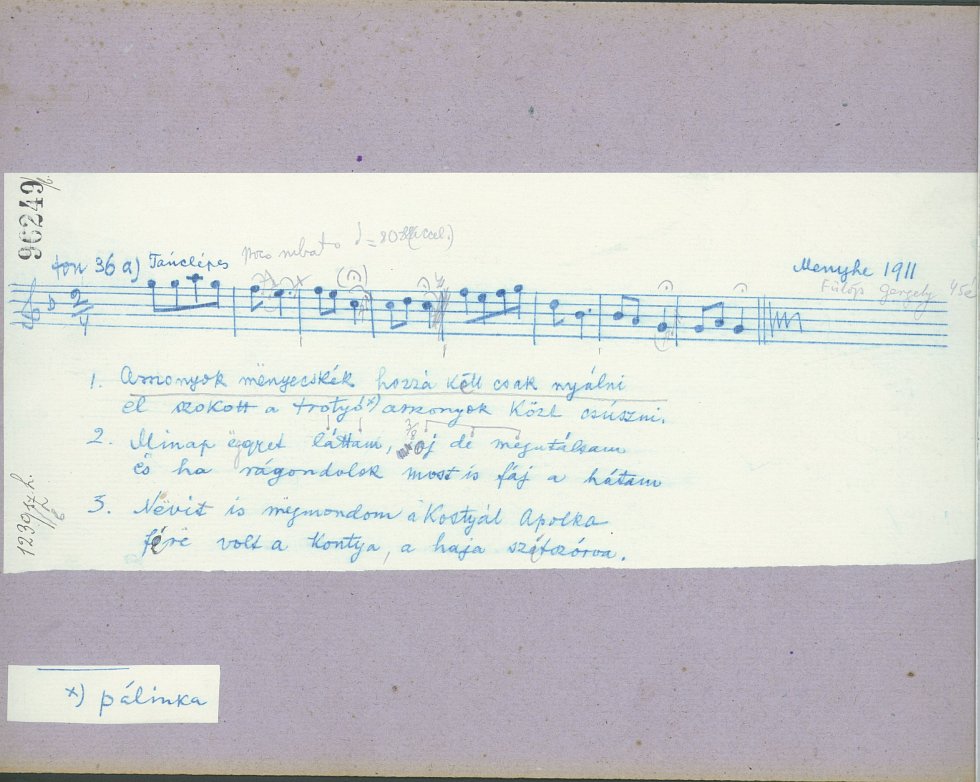 96249
poco rubato ♩=80 (accel.)
fon 36 a) Tánclépés
Menyhe 1911
Fülöp Gergely 45é
2/4
1. Asszonyok mēnyecskék hozzá këll csak nyálni
el szokott a trotyó x) asszonyok közt csúszni.
2. Minap ëggyet láttam, de mëgutálsam
és ha rágondolok most is fáj a hátam
3. Nevit is mëgmondom a Kostyál Apolka
félre volt a kontya, a haja szétszórva.
1239
x) pálinka